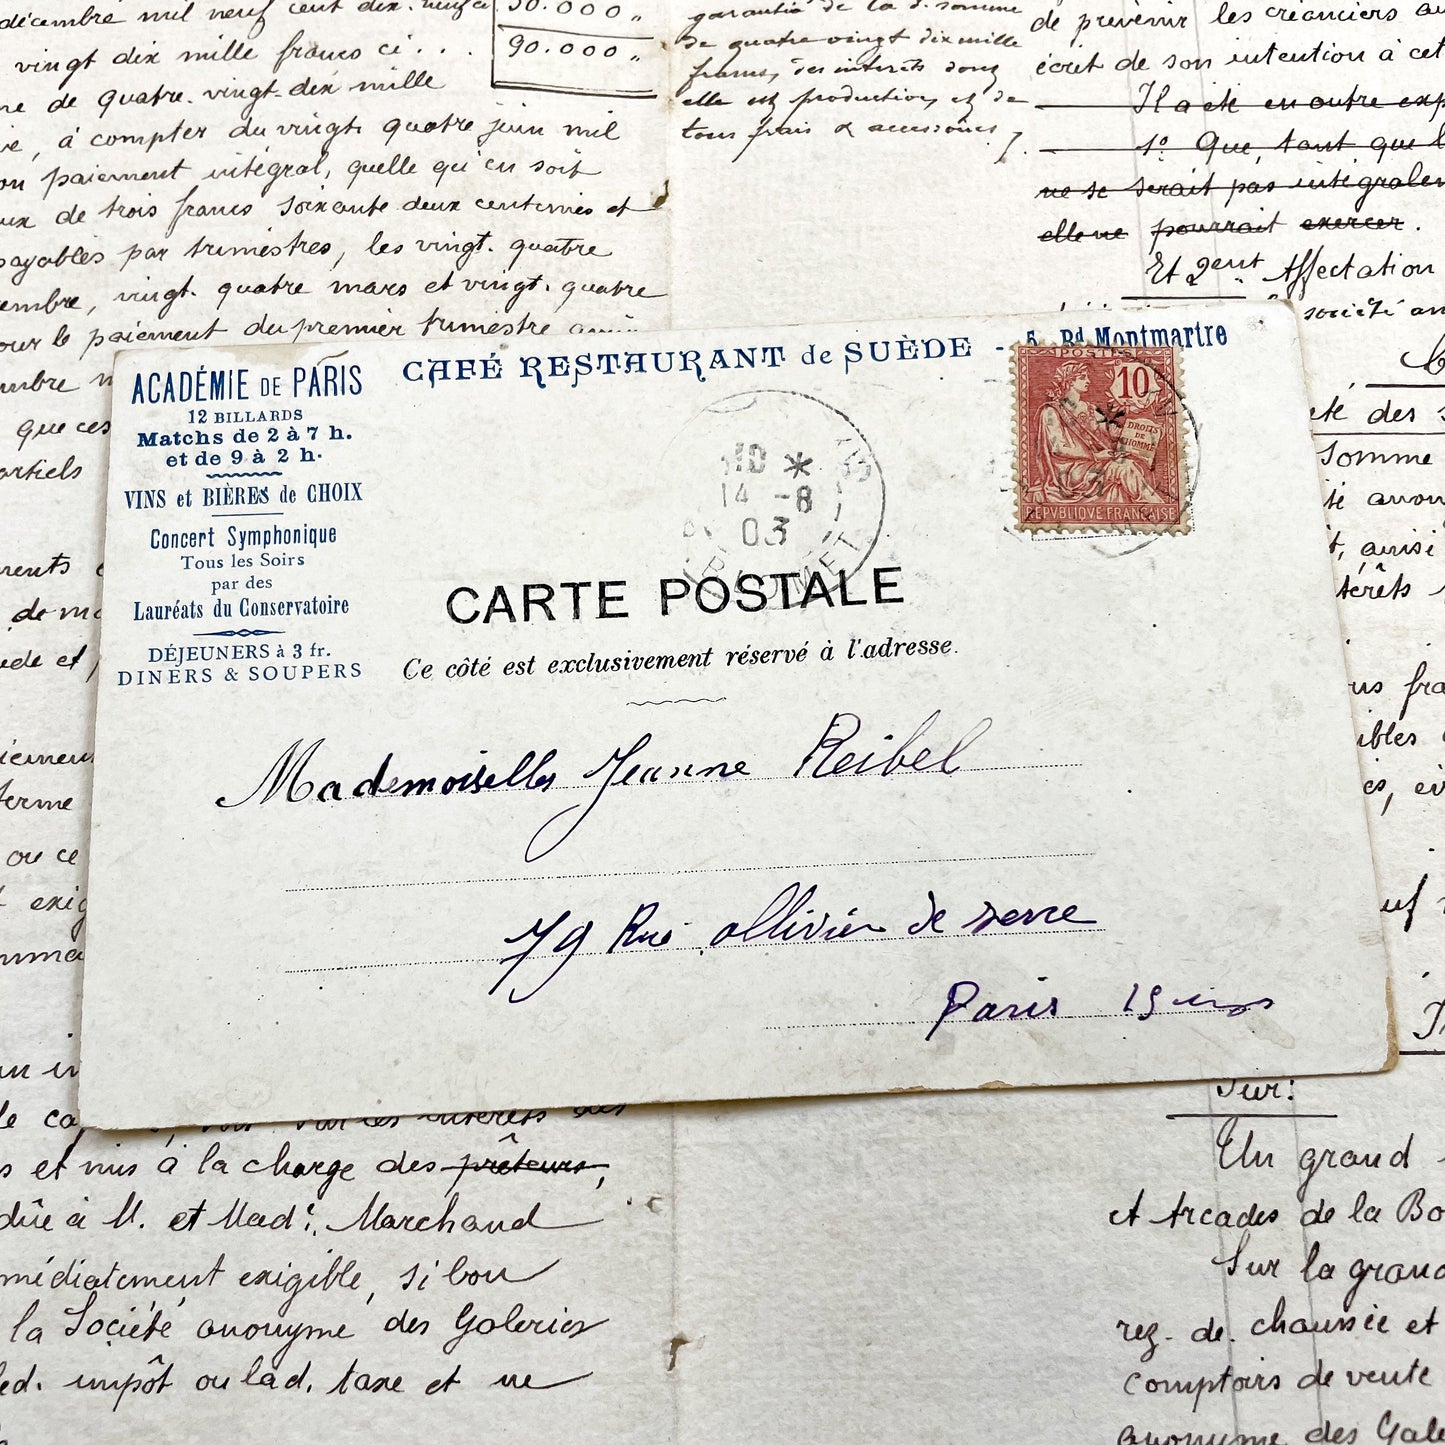 décembre mil neuf cent dix.
vingt dix mille francs ci . . .
de quatre.vingt-dix mille
, à compter du vingt quatre juin mil
paiement intégral, quelle qu'en soit
de trois francs soixante deux centimes et
payables par trimestres, les vingt. quatre
vingt. quatre mars et vingt. quatre
le paiement du premier trimestre
que ces
50.000 „
90.000 „
garantie de la d. somme
de quatre vingt dix mille
francs, des intérêts dont
elle est production, et de
tous frais & accessoires
de prévenir les créanciers
écrit de son intention à cet
Il a été en outre
1º Que, tant que
ne se serait pas
elle ne pourrait exercer.
Et 2ent Affectation
société
des
Somme
ACADÉMIE DE PARIS
12 BILLARDS
Matchs de 2 à 7 h.
et de 9 à 2 h.
VINS et BIÈRES de CHOIX
Concert Symphonique
Tous les Soirs
par des
Lauréats du Conservatoire
DÉJEUNERS à 3 fr.
DINERS & SOUPERS
CAFÉ RESTAURANT de SUÈDE - 5, Bd Montmartre
14 -8
03
POSTES
10
DROITS
DE
L'HOMME
REPVBLIQVE FRANÇAISE
CARTE POSTALE
Ce côté est exclusivement réservé à l'adresse.
Mademoiselle Jeanne Reibel
79 Rue Ollivier de Serre
Paris 15
ou ce
et mis à la charge des prêteurs,
dûe à M. et Made. Marchand
exigible, si bon
la Société anonyme des Galeries
impôt ou lad. taxe et ne
Sur:
Un grand
et Arcades de la
Sur la
rez. de. chaussée et
comptoirs de vente
anonyme des